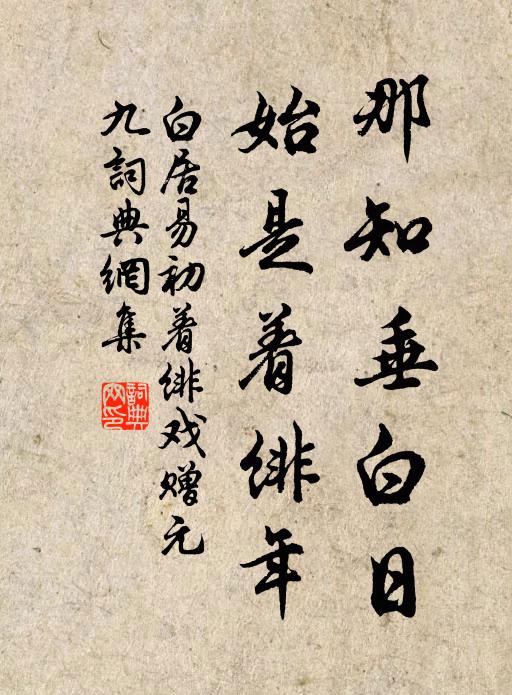 那知垂白日
始是着緋年
白居易初着緋戏赠元
九詞典網集
詞典網印